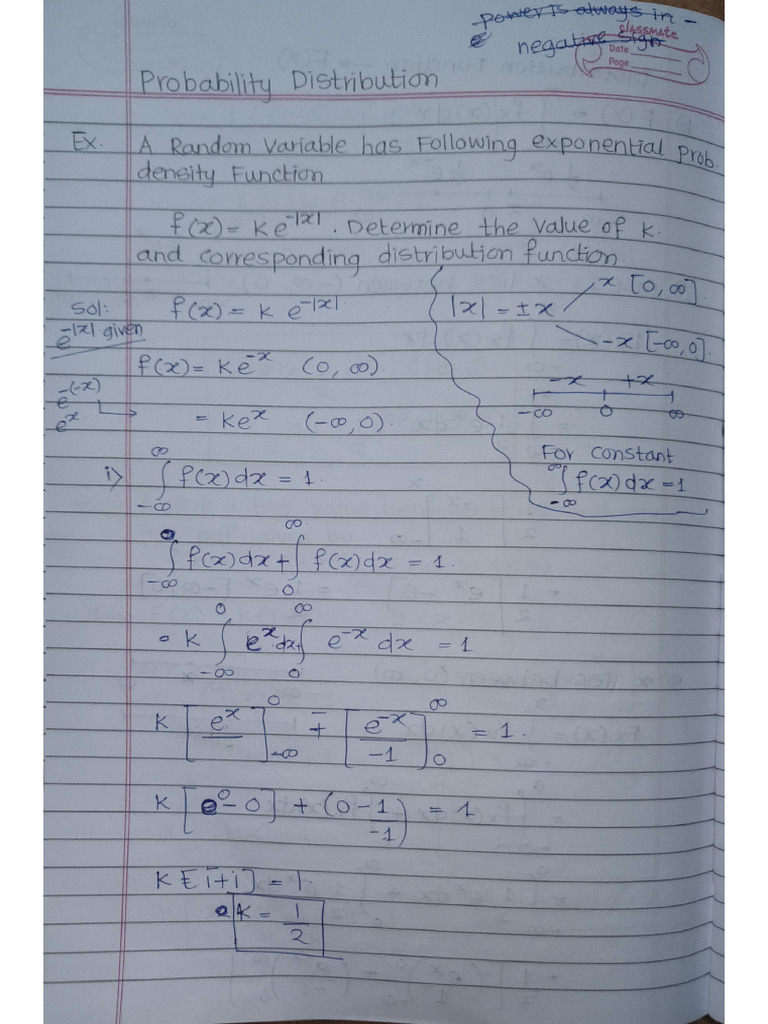 power is always in -
negative sign
classmate
Date
Page
Probability Distribution
Ex. A Random Variable has Following exponential Prob.
density Function
f(x) = K e^-|x| . Determine the value of K.
and corresponding distribution function
Sol: f(x) = K e^-|x|.
|x| = ±x
x [0, ∞].
-x [-∞, 0].
e^-|x| given
f(x) = K e^-x (0, ∞).
-x +x
-∞ 0 ∞
e^-(-x)
e^x
= K e^x (-∞, 0).
For constant
∫_-∞^∞ f(x) dx = 1
i) ∫_-∞^∞ f(x) dx = 1.
∫_-∞^0 f(x) dx + ∫_0^∞ f(x) dx = 1.
K ∫_-∞^0 e^x dx + ∫_0^∞ e^-x dx = 1
K [e^x]_-∞^0 + [e^-x/-1]_0^∞ = 1.
K [e^0 - 0] + (0 - 1/-1) = 1
K [1+1] = 1.
K = 1/2